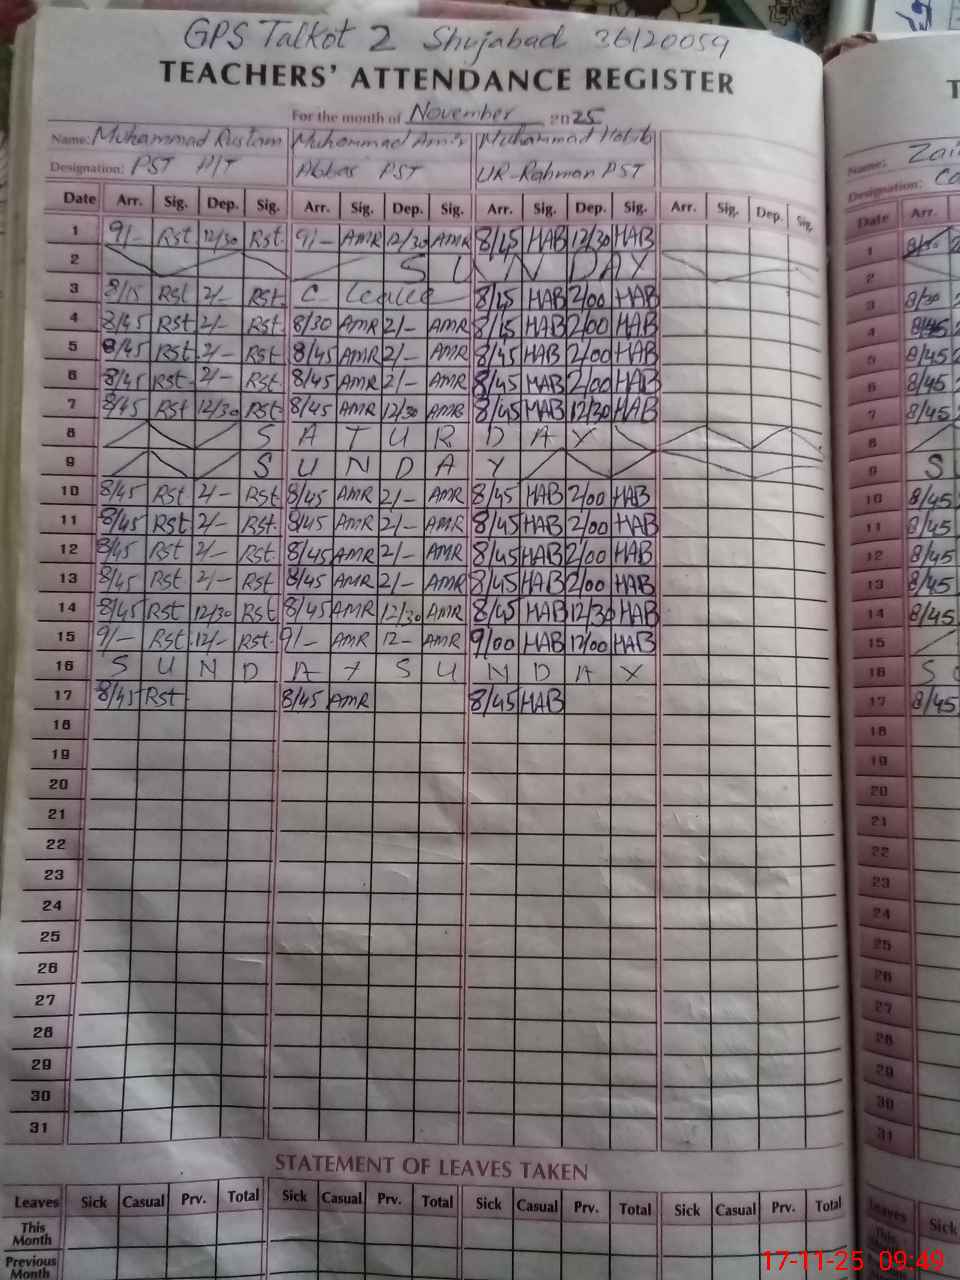 GPS Talkot 2 Shujabad 36120059
TEACHERS' ATTENDANCE REGISTER
For the month of November 2025
Name: Muhammad Rustam Muhammad Amir Muhammad Habib
Designation: PST Abbas PST UR-Rahman PST
Date Arr. Sig. Dep. Sig. Arr. Sig. Dep. Sig. Arr. Sig. Dep. Sig. Arr. Sig. Dep. Sig.
1 9/- Rst 12/30 Rst. 9/- AMR 12/30 AMR 8/45 HAB 12/30 HAB
2 SUNDAY
3 8/15 Rst 2/- Rst. C. Leave 8/25 HAB 2/00 HAB
4 8/45 Rst 2/- Rst. 8/30 AMR 2/- AMR 8/15 HAB 2/00 HAB
5 8/45 Rst. 2/- Rst. 8/45 AMR 2/- AMR 8/45 HAB 2/00 HAB
6 8/45 Rst. 2/- Rst. 8/45 AMR 2/- AMR 8/45 HAB 2/00 HAB
7 8/45 Rst 12/30 Rst. 8/45 AMR 12/30 AMR 8/45 HAB 12/30 HAB
8 S A T U R D A Y
9 S U N D A Y
10 8/45 Rst 2/- Rst 8/45 AMR 2/- AMR 8/45 HAB 2/00 HAB
11 8/45 Rst. 2/- Rst. 8/45 AMR 2/- AMR 8/45 HAB 2/00 HAB
12 8/45 Rst 2/- Rst. 8/45 AMR 2/- AMR 8/45 HAB 2/00 HAB
13 8/45 Rst 2/- Rst 8/45 AMR 2/- AMR 8/45 HAB 2/00 HAB
14 8/45 Rst 12/30 Rst 8/45 AMR 12/30 AMR 8/45 HAB 12/30 HAB
15 9/- Rst. 12/- Rst. 9/- AMR 12- AMR 9/00 HAB 12/00 HAB
16 S U N D A Y S U N D A Y
17 8/45 Rst 8/45 AMR 8/45 HAB
18
19
20
21
22
23
24
25
26
27
28
29
30
31
STATEMENT OF LEAVES TAKEN
Leaves Sick Casual Prv. Total Sick Casual Prv. Total Sick Casual Prv. Total Sick Casual Prv. Total
This Month
Previous Month
Name:
Designation:
Date Arr.
1
2
3 8/30
4
5 8/45
6 8/45
7 8/45
8
9 S
10 8/45
11 8/45
12 8/45
13 8/45
14 8/45
15
16 S
17 8/45
18
19
20
21
22
23
24
25
26
27
28
29
30
31
Leaves Sick
17-11-25 09:49